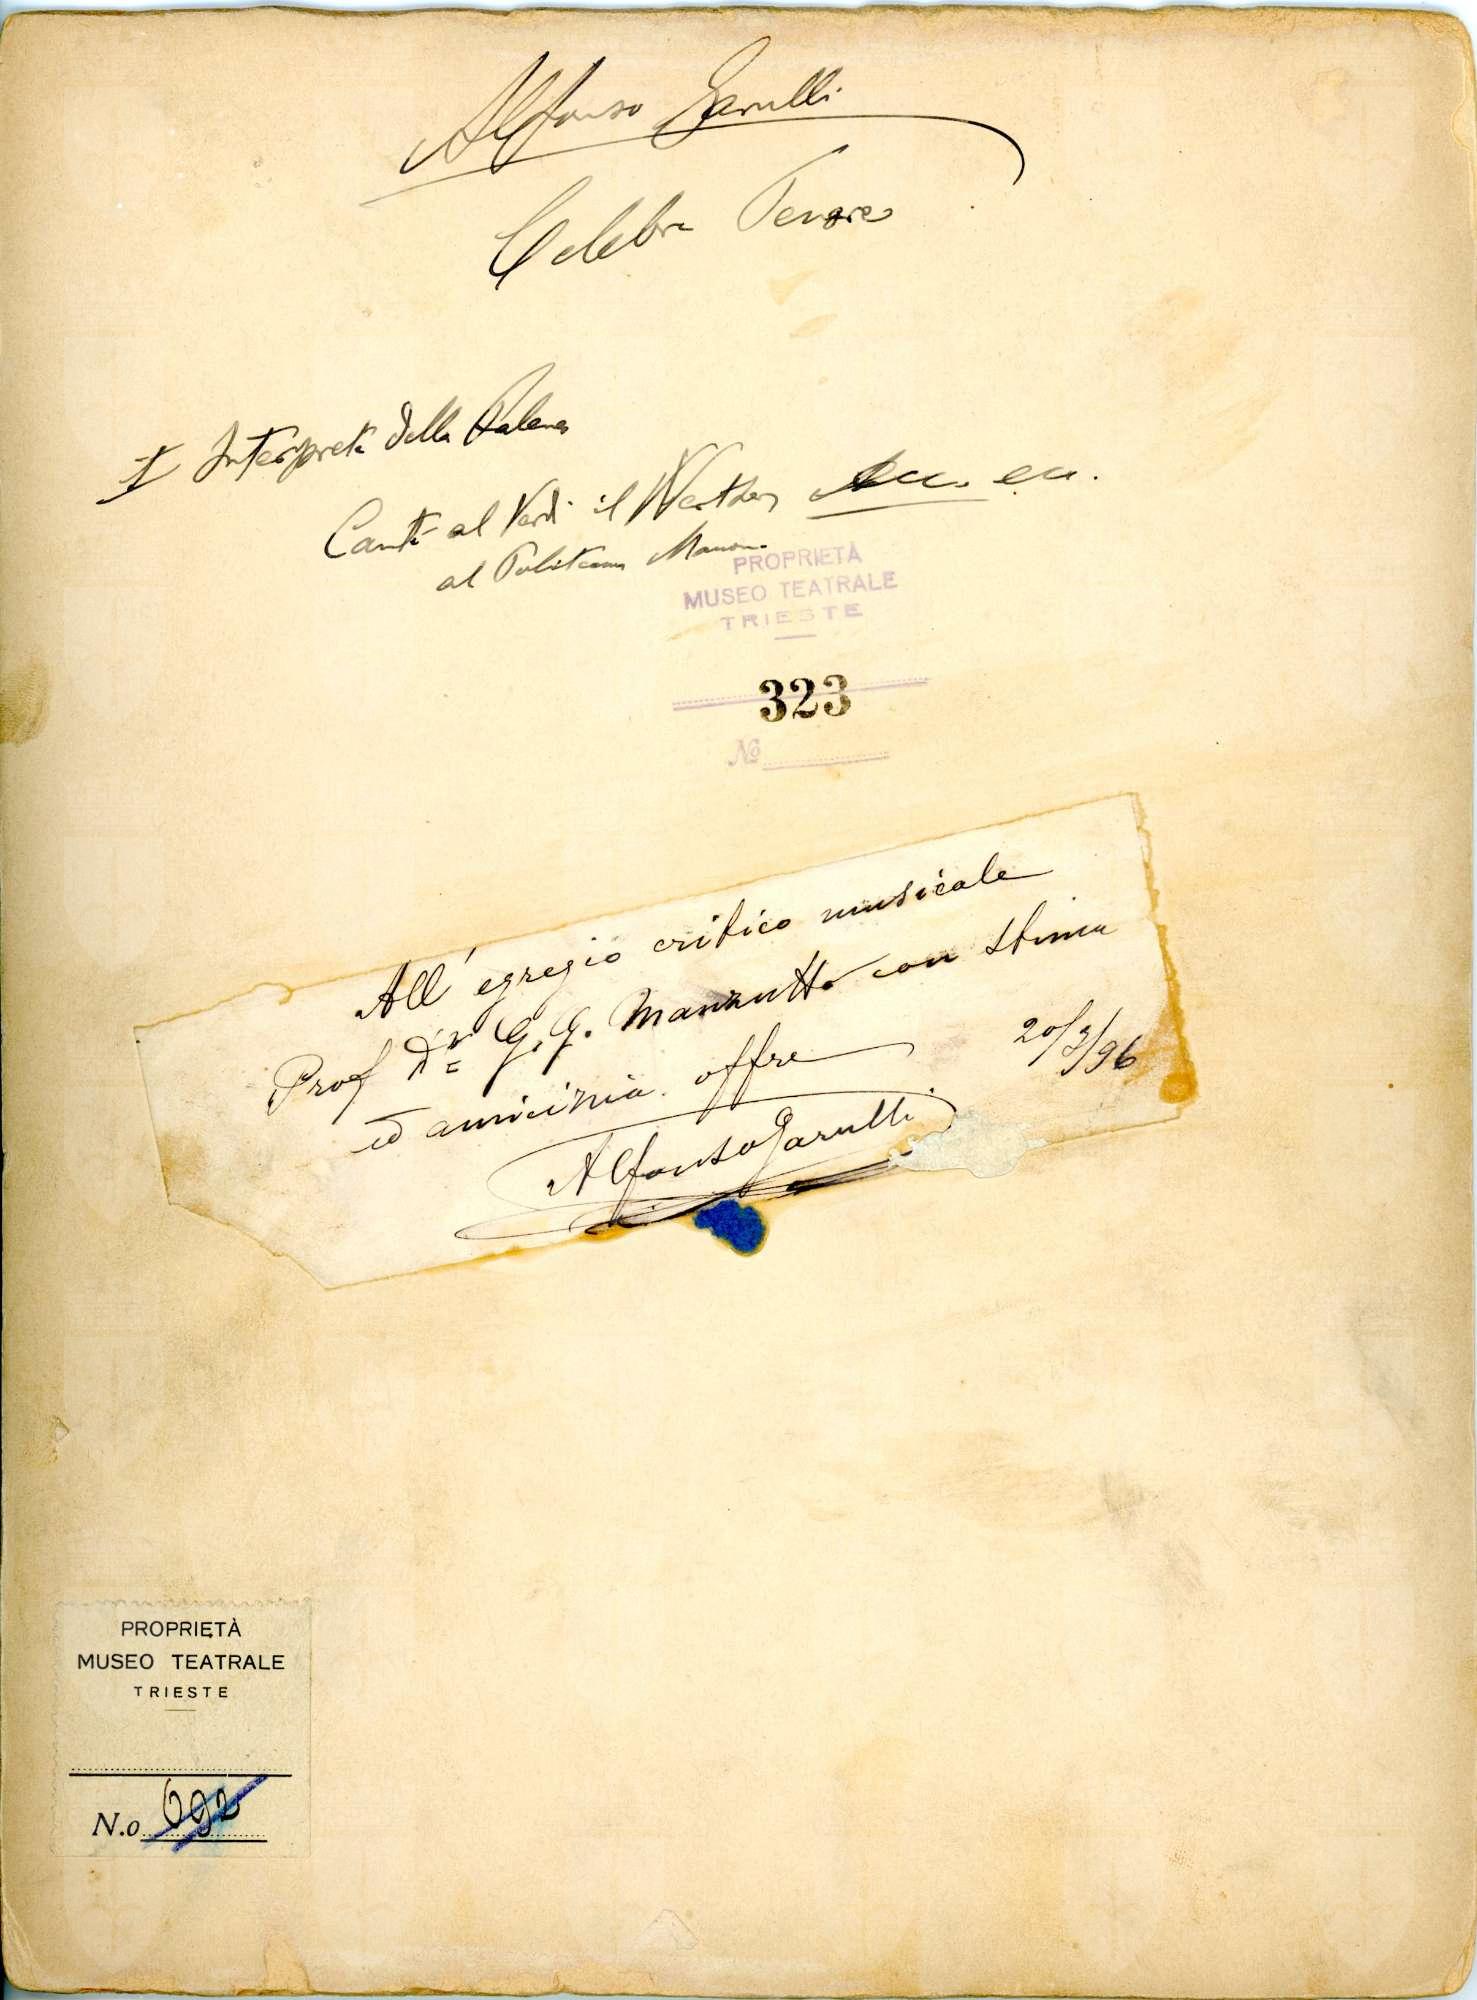 Alfonso Garulli
Celebre Tenore
I Interprete della Falena
Cantò al Verdi il Werther ecc. ecc.
al Politeama Manon
PROPRIETÀ
MUSEO TEATRALE
TRIESTE
323
No
All'egregio critico musicale
Prof Dr G. G. Manzutto con stima
ed amicizia offre
20/3/96
Alfonso Garulli
PROPRIETÀ
MUSEO TEATRALE
TRIESTE
N.o 692